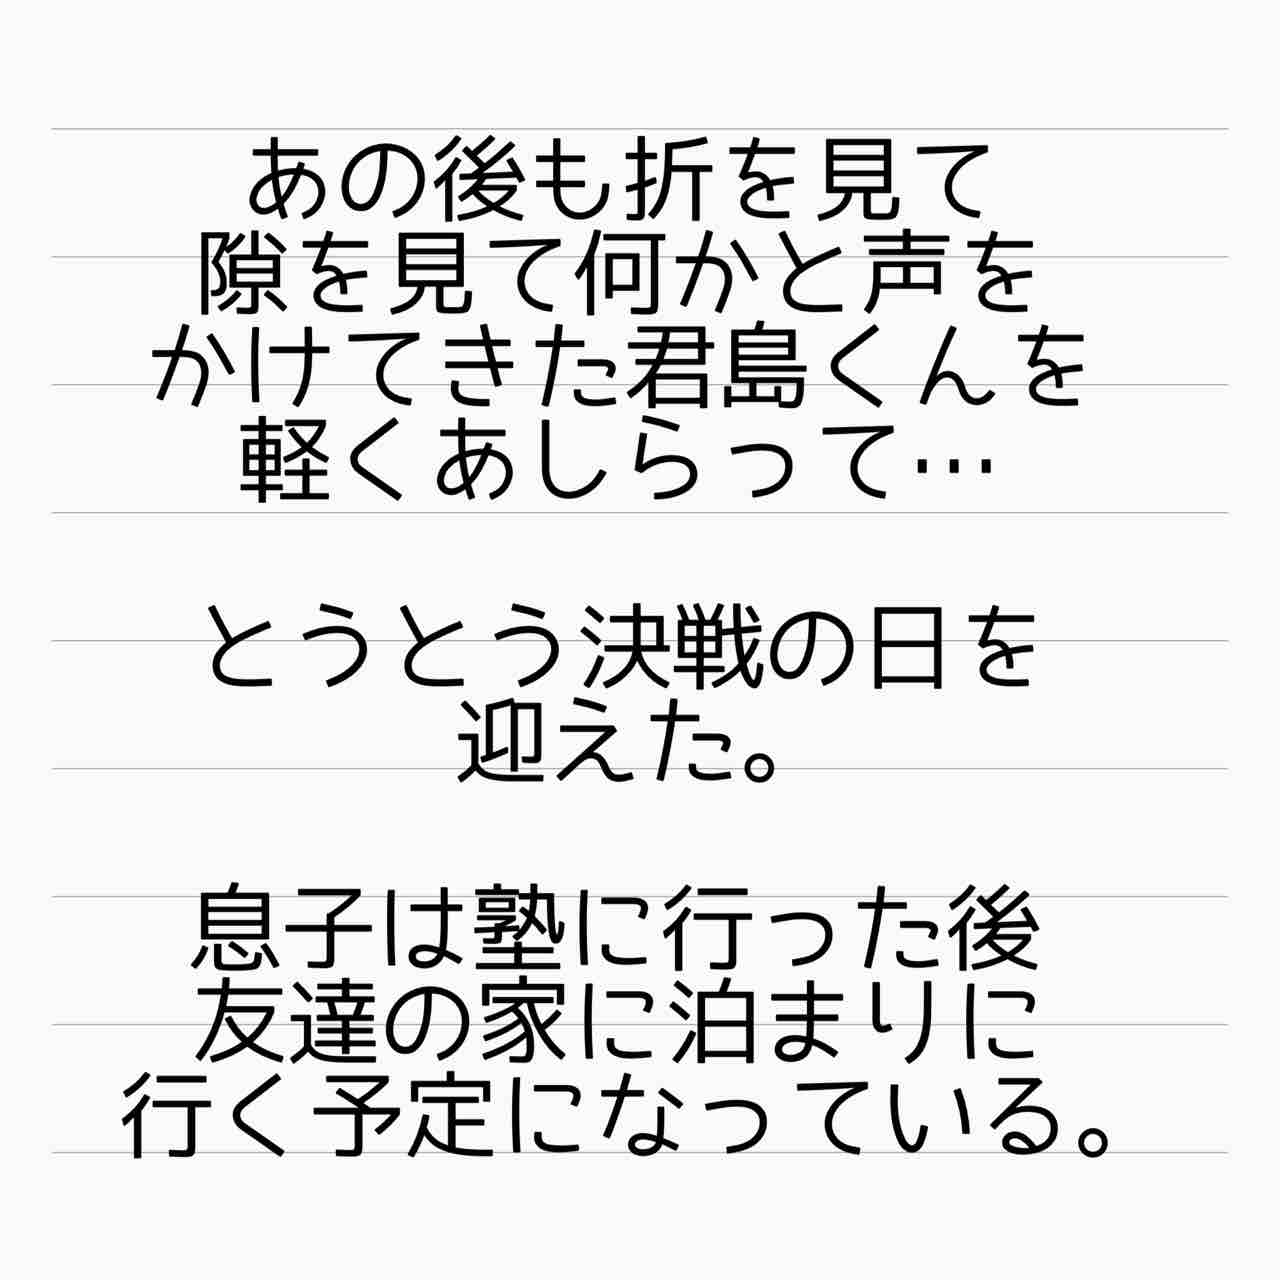 あの後も折を見て
隙を見て何かと声を
かけてきた君島くんを
軽くあしらって…
とうとう決戦の日を
迎えた。
息子は塾に行った後
友達の家に泊まりに
行く予定になっている。